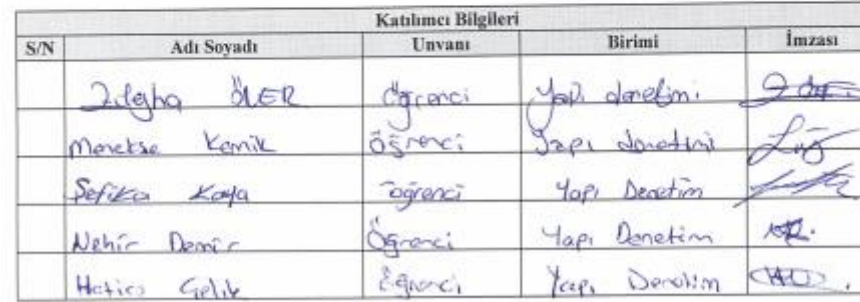 Katılımcı Bilgileri
S/N Adı Soyadı Unvanı Birimi İmzası
Züleyha ÖLER Öğrenci Yapı denetimi
Menekşe Kemik Öğrenci Yapı denetimi
Şefika Kaya öğrenci Yapı Denetim
Nehir Demir Öğrenci Yapı Denetim
Hatice Çelik Öğrenci Yapı Denetim